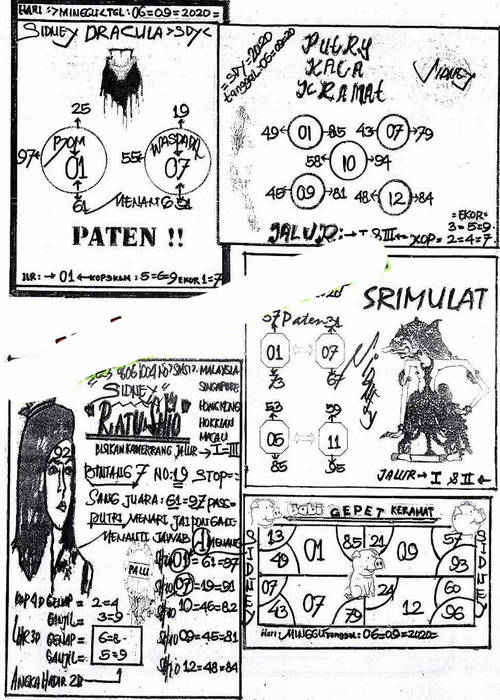 HARI :>MINGGU<TGL : 06=09=2020=
SIDNEY DRACULA>SDY<
25
19
BOM
97
01
WASPADA
55
07
61
MENANG
51
PATEN !!
JLR: → 01 ←KOP : 5=6=9 EKOR 1=7
=SDY=2020
tanggal:06=09=20
PUTRY
KACA
KRAMAT
SIDNEY
49 01 85
43 07 79
58 10 94
45 09 81
48 12 84
=EKOR=
3=5=9
JALUR:→ I & III ← KOP= 2=4=7
SRIMULAT
37 Paten 31
01 07
73 67
SIDNEY
53 59
05 11
85 95
JALUR→ I & II ←
MALAYSIA
SINGAPURE
HONGKONG
HOKKIAN
MACAU
SIDNEY
RATU SHIO
BISIKAN KAWERRANG JALUR → I=III
92
BINTANG 7 NO:19 STOP=
SANG JUARA: 61=97 PASS=
PUTRI MENARI JAIPONGAN=
MENANTI JAWAB 1 MENANG
PALU
SHIO 01 = 61=97
SHIO 07 = 19=91
SHIO 10=46=82
SHIO 09=45=81
SHIO 12=48=84
KOP 4D GENAP = 2=4
GANJIL= 3=9
LAR 3D GENAP= 6=8
GANJIL= 5=9
ANGKA HADAR 2D 1
Babi GEPET KERAMAT
SIDNEY
13 01 85 21 09 57
49 93
07 07 79 24 12 60
43 96
SIDNEY
Hari: MINGGU tanggal: 06=09=2020=